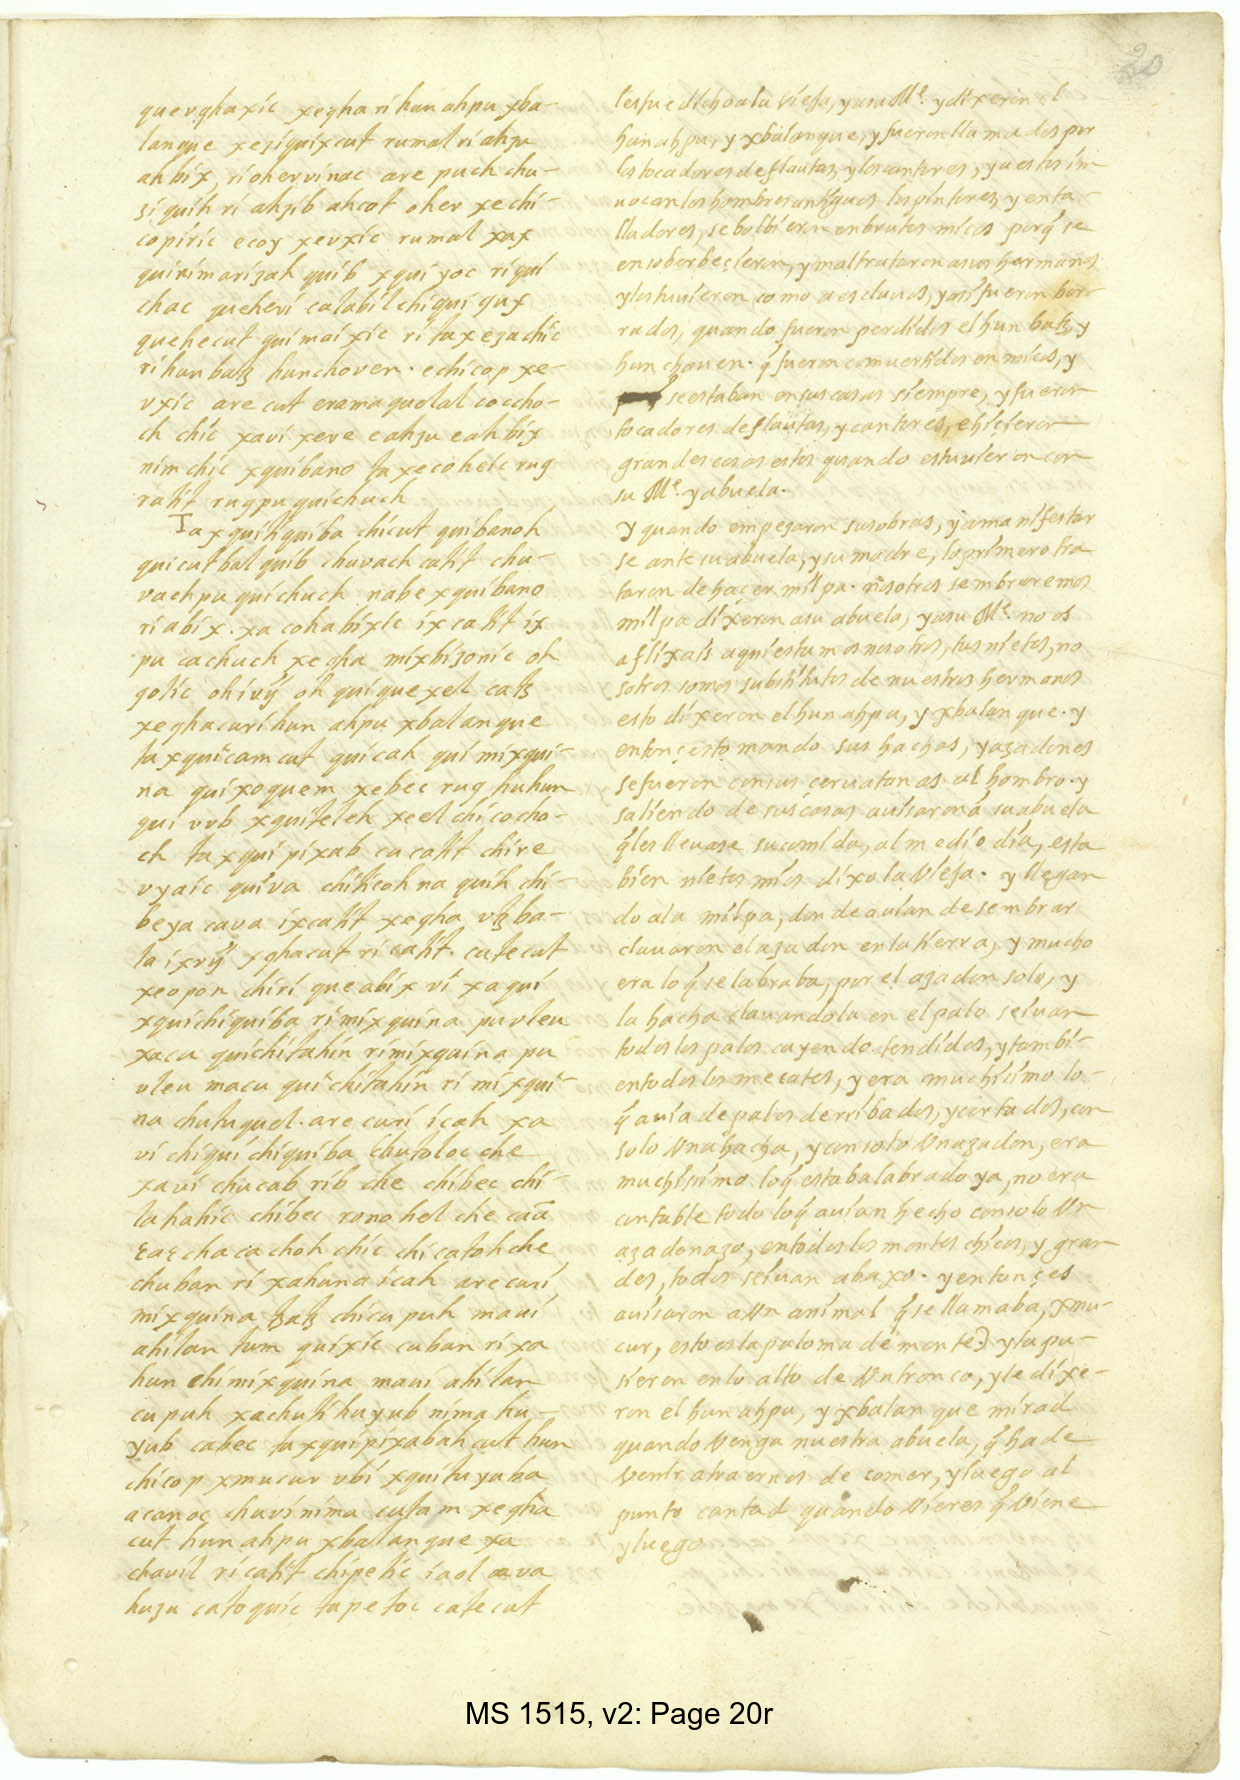 20
quevghaxic xegha ri hun ahpu xba-
lanque xeziquixcut rumal ri ahzu
ah bix, ri oher vinac are puch chu-
ziquih ri ahzib ahcot oher xe chi-
copiric ecoy xevxic rumal xax
quinimarizah quib xqui yoc ri qui
chac queheri calabil chiqui qux
quehecut qui maixic ri ta xezachic
ri hun batz hunchoven. echicop xe-
vxic are cut eramaquelal coccho-
ch chic xavi xeve eahzu eah bix
nim chic xquibano ta xecoheic rug
ratit rug pu quichuch
Ta xquitiquiba chicut quibanoh
quicutbal quib chuvach catit chu-
vach pu quichuch nabe xquibano
ri abix. xa cohabixic ix catit ix
pu cachuch xegha mixbizonic oh
golic ohivÿ oh quiquexel catz
xeghacuri hun ahpu xbalanque
ta xquicam cut quicah qui mixqui-
na quixoquem xebec rug huhun
qui vvb xquiteleh xeel chicocho-
ch ta xquipixab ca catit chire
vyaic quiva chiticoh na quih chi-
beya cava ixcatit xegha vtzba-
la ixvÿ xghacut ri catit. catecut
xeopon chiri queabix vi xaqui
xquichiquiba ri mixquina pu vleu
xacu quichilahin ri mixquina pu
vleu macu quichilahin ri mixqui-
na chutuquel. are curi icah xa
vi chiqui chiquiba chutoloc che
xavi chucab rib che chibec chi-
tahahic chibec ronohel che caã
εaε cha ca choh chic chi catoh che
chuban ri xahuna icah are curi
mixquina tzatz chicupuh mavi
ahilan tum quixic caban ri xa
hun chi mixquina mavi ahilan
cupuh xachuti huyub nima hu-
yub cabec ta xquipixabah cut hun
chicop xmucur vbi xquituyuba
acanoc chuvi nima cutam xegha
cut hun ahpu xbalanque xa
chavil ri catit chipetic iaol ca va
huzu catoquic tapetoc catecut
les fue dicho a la vieja, y a su Me. y dixeron el
hun ahpu, y xbalanque, y fueron llamados por
los tocadores de flautas y los cantores, y a estos in-
vocan los hombres antiguos los pintores, y enta-
lladores, se bolbieron en brutos micos porq̃ se
ensoberbeçieron, y maltrataron a sus hermanos
y los tuuieron como a esclauos, y assi fueron bor-
rados, quando fueron perdidos el hun batz, y
hun chouen. q̃ fueron comuertidos en micos, y
se estaban en sus casas siempre, y fueron
tocadores de flautas, y cantores, e hiçieron
grandes cosas estos quando estuuieron con
su Me. y abuela.
Y quando empezaron sus obras, y a manifestar
se ante su abuela, y su madre, lo primero tra
taron de haçer milpa. nosotros sembraremos
milpa dixeron a su abuela, y a su Me. no os
aflixais aqui estamos nosotros, tus nietos, no
sotros somos substitutos de nuestros hermanos
esto dixeron el hun ahpu, y xbalanque. y
entonçes tomando sus hachas, y azadones
se fueron con sus ceruatanas al hombro. y
saliendo de sus casas auisaron a su abuela
q̃ les lleuase su comida, al medio dia, esta
bien nietos mios dixo la Vieja. y llegan
do a la milpa, donde auian de sembrar
clauaron el azadon en la tierra, y mucho
era lo q̃ se labraba, por el azadon solo, y
la hacha clauandola en el palo se iuan
todos los palos cayendo tendidos, y tambi-
en todos los mecates, y era muchisimo lo
q̃ auia de palos derribados, y cortados, con
solo Vna hacha, y con solo Vn azadon, era
muchisimo lo q̃ estaba labrado ya, no era
contable todo lo q̃ auian hecho con solo Vn
azadonazo, en todos los montes chicos, y gran
des, todos se iuan abaxo. y entonçes
auisaron a Vn animal q̃ se llamaba, xmu-
cur, esto es la paloma de monte) y la pu-
sieron en lo alto de Vn tronco, y le dixe-
ron el hun ahpu, y xbalanque mirad
quando Venga nuestra abuela, q̃ ha de
Venir a traernos de comer, y luego al
punto cantad quando Vieres q̃ Viene
y luego
MS 1515, v2: Page 20r